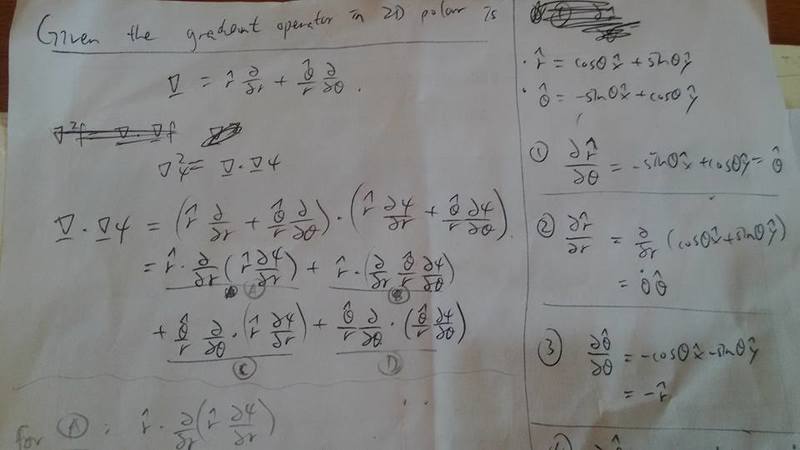 Given the gradient operator in 2D polar is
∇ = r̂ ∂/∂r + θ̂/r ∂/∂θ.
∇²ψ = ∇·∇ψ
∇·∇ψ = (r̂ ∂/∂r + θ̂/r ∂/∂θ)·(r̂ ∂ψ/∂r + θ̂/r ∂ψ/∂θ).
= r̂·∂/∂r(r̂ ∂ψ/∂r) + r̂·(∂/∂r θ̂/r ∂ψ/∂θ)
Ⓐ Ⓑ
+ θ̂/r ∂/∂θ·(r̂ ∂ψ/∂r) + θ̂/r ∂/∂θ·(θ̂/r ∂ψ/∂θ)
Ⓒ Ⓓ
for Ⓐ: r̂·∂/∂r(r̂ ∂ψ/∂r)
· r̂ = cosθx̂ + sinθŷ
· θ̂ = -sinθx̂ + cosθŷ
① ∂r̂/∂θ = -sinθx̂ + cosθŷ = θ̂
② ∂r̂/∂r = ∂/∂r (cosθx̂ + sinθŷ)
= θ̇θ̂
③ ∂θ̂/∂θ = -cosθx̂ - sinθŷ
= -r̂